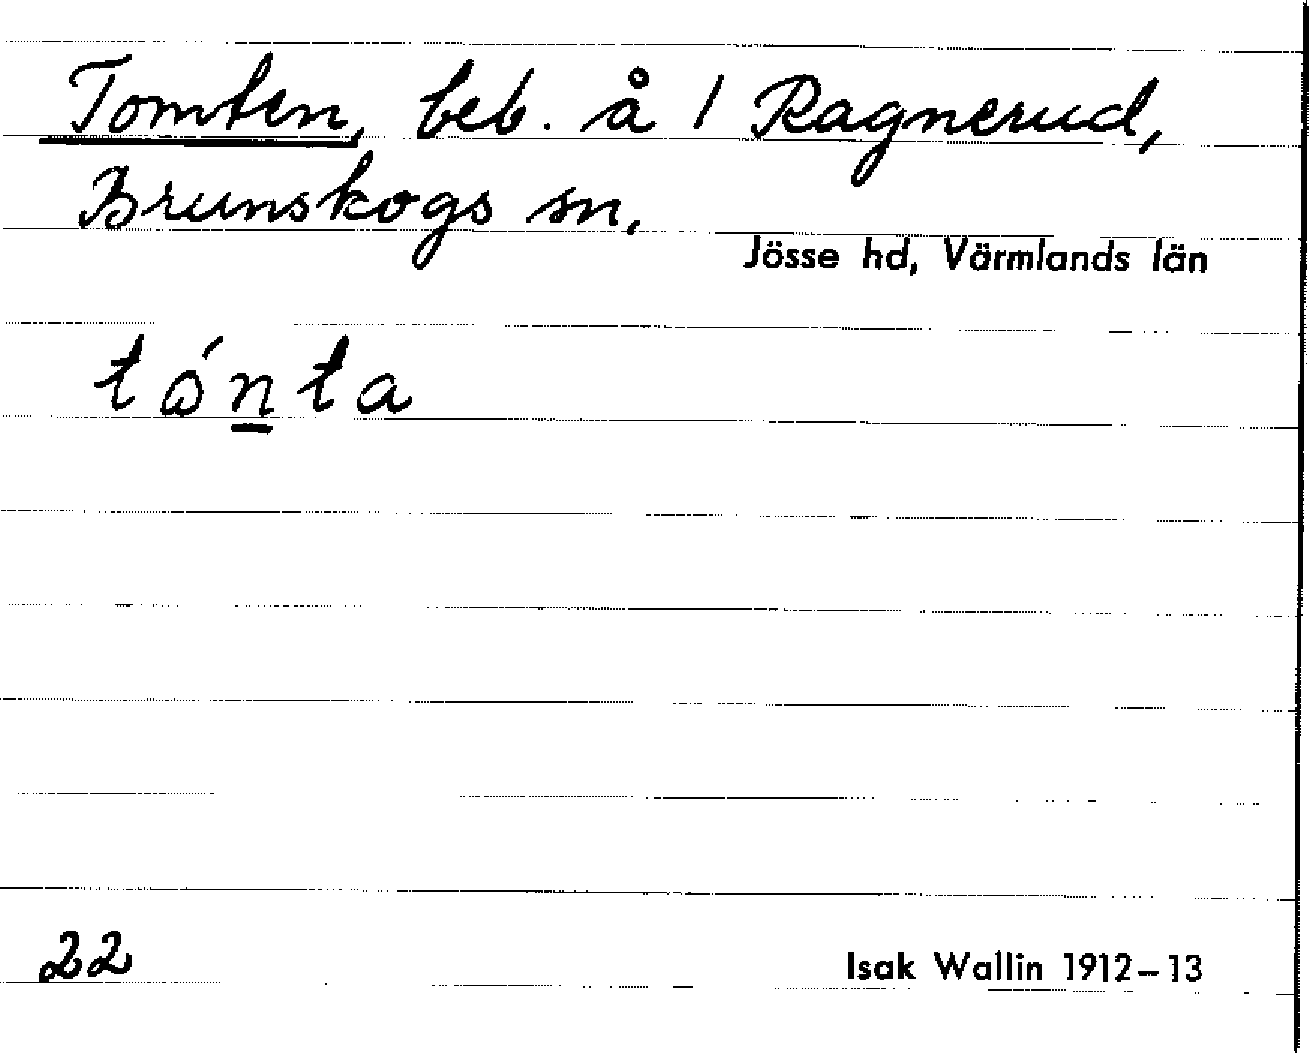 Tomten, beb. å 1 Ragnerud,
Brunskogs sn,
Jösse hd, Värmlands län
tǿn̲ta
22
Isak Wallin 1912–13